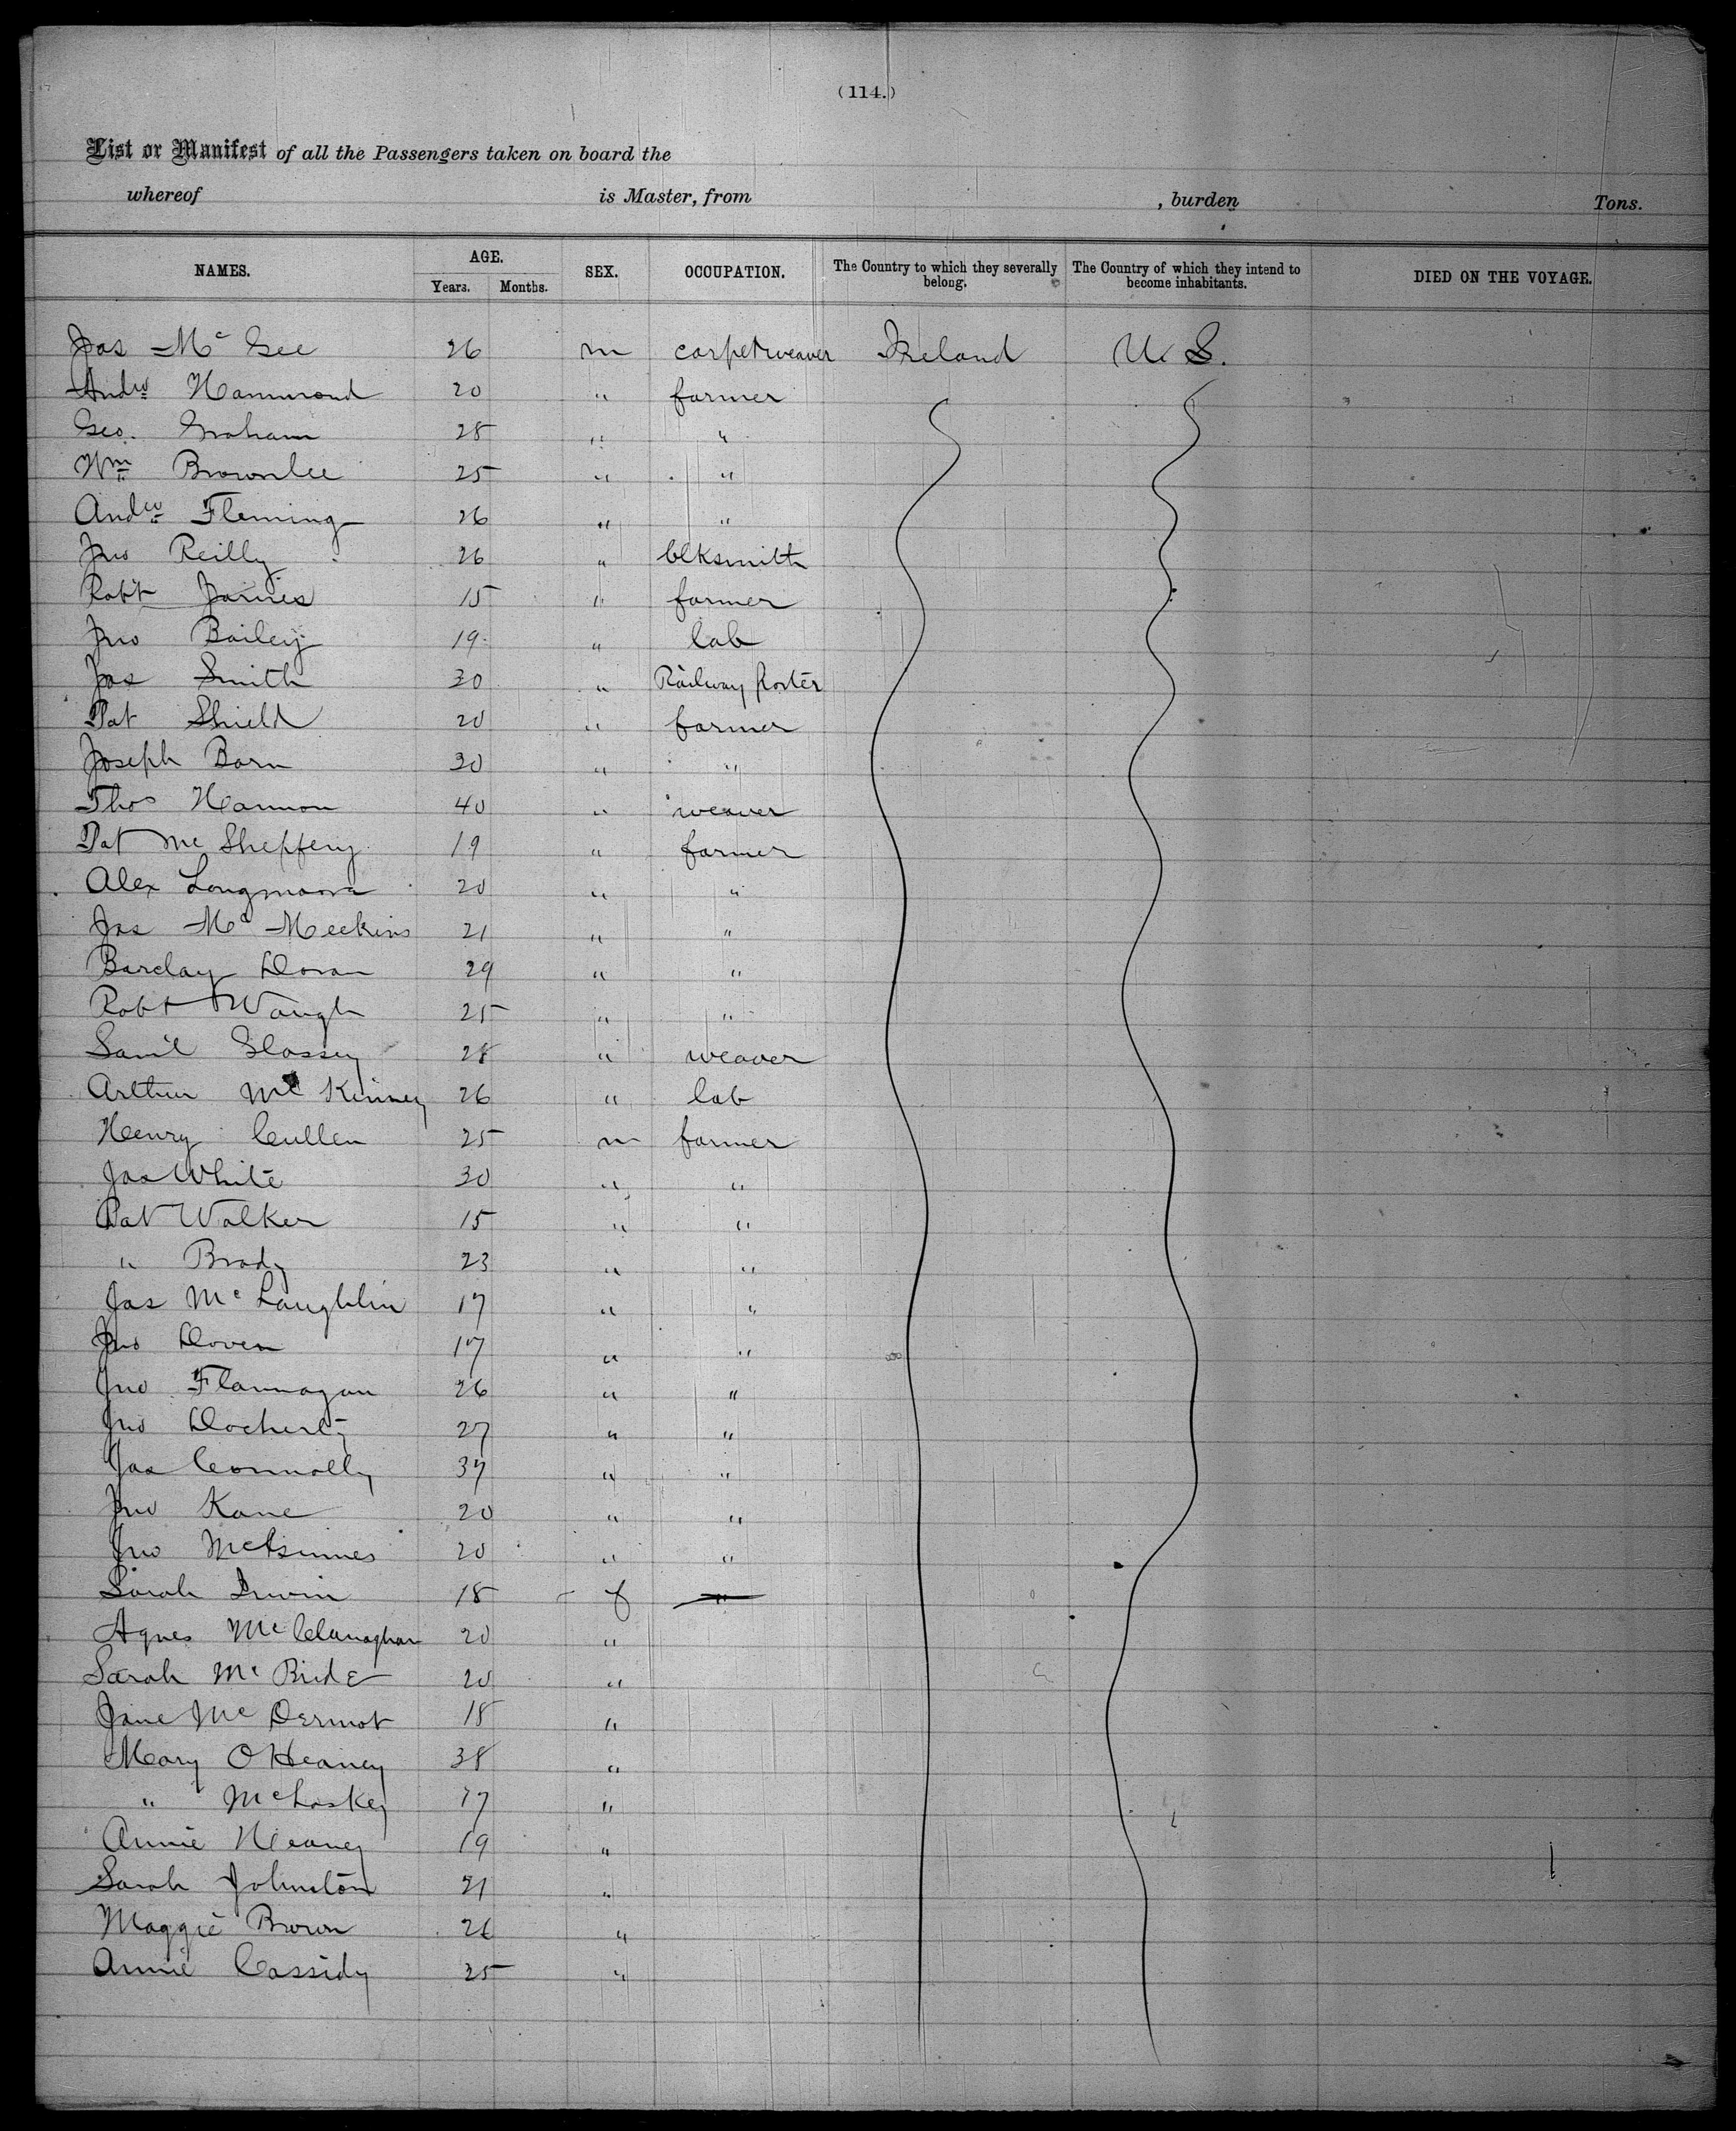 (114.)
List or Manifest of all the Passengers taken on board the
whereof is Master, from , burden Tons.
NAMES. AGE. Years. Months. SEX. OCCUPATION. The Country to which they severally belong. The Country of which they intend to become inhabitants. DIED ON THE VOYAGE.
Jas McGee 26 m carpetweaver Ireland U. S.
Andw Hammond 20 " farmer
Geo. Graham 28 " "
Wm Brownlee 25 " "
Andw Fleming 26 " "
Jno Reilly 26 " blksmith
Robt 15 " farmer
Jno Bailey 19 " lab
Jas Smith 30 " Railway Porter
Pat Shield 20 " farmer
Joseph Barn 30 " "
Thos Hannon 40 " weaver
Pat McSheffery 19 " farmer
Alex Longmoore 20 " "
Jas McMeekins 21 " "
Barclay Doran 29 " "
Robt Waugh 25 " "
Saml Glassey 28 " weaver
Arthur McKinney 26 " lab
Henry Cullen 25 m farmer
Jas White 30 " "
Pat Walker 15 " "
" Brady 23 " "
Jas McLaughlin 17 " "
Jno 17 " "
Jno Flannagan 26 " "
Jno Docherty 27 " "
Jas Connolly 37 " "
Jno Kane 20 " "
Jno McGinnes 20 " "
Sarah Irwin 18 f "
Agnes McClanaghan 20 "
Sarah McBride 20 "
Jane McDermot 18 "
Mary OHeaney 38 "
" McLoskey 17 "
Annie Heaney 19 "
Sarah Johnston 21 "
Maggie Brown 26 "
Annie Cassidy 25 "